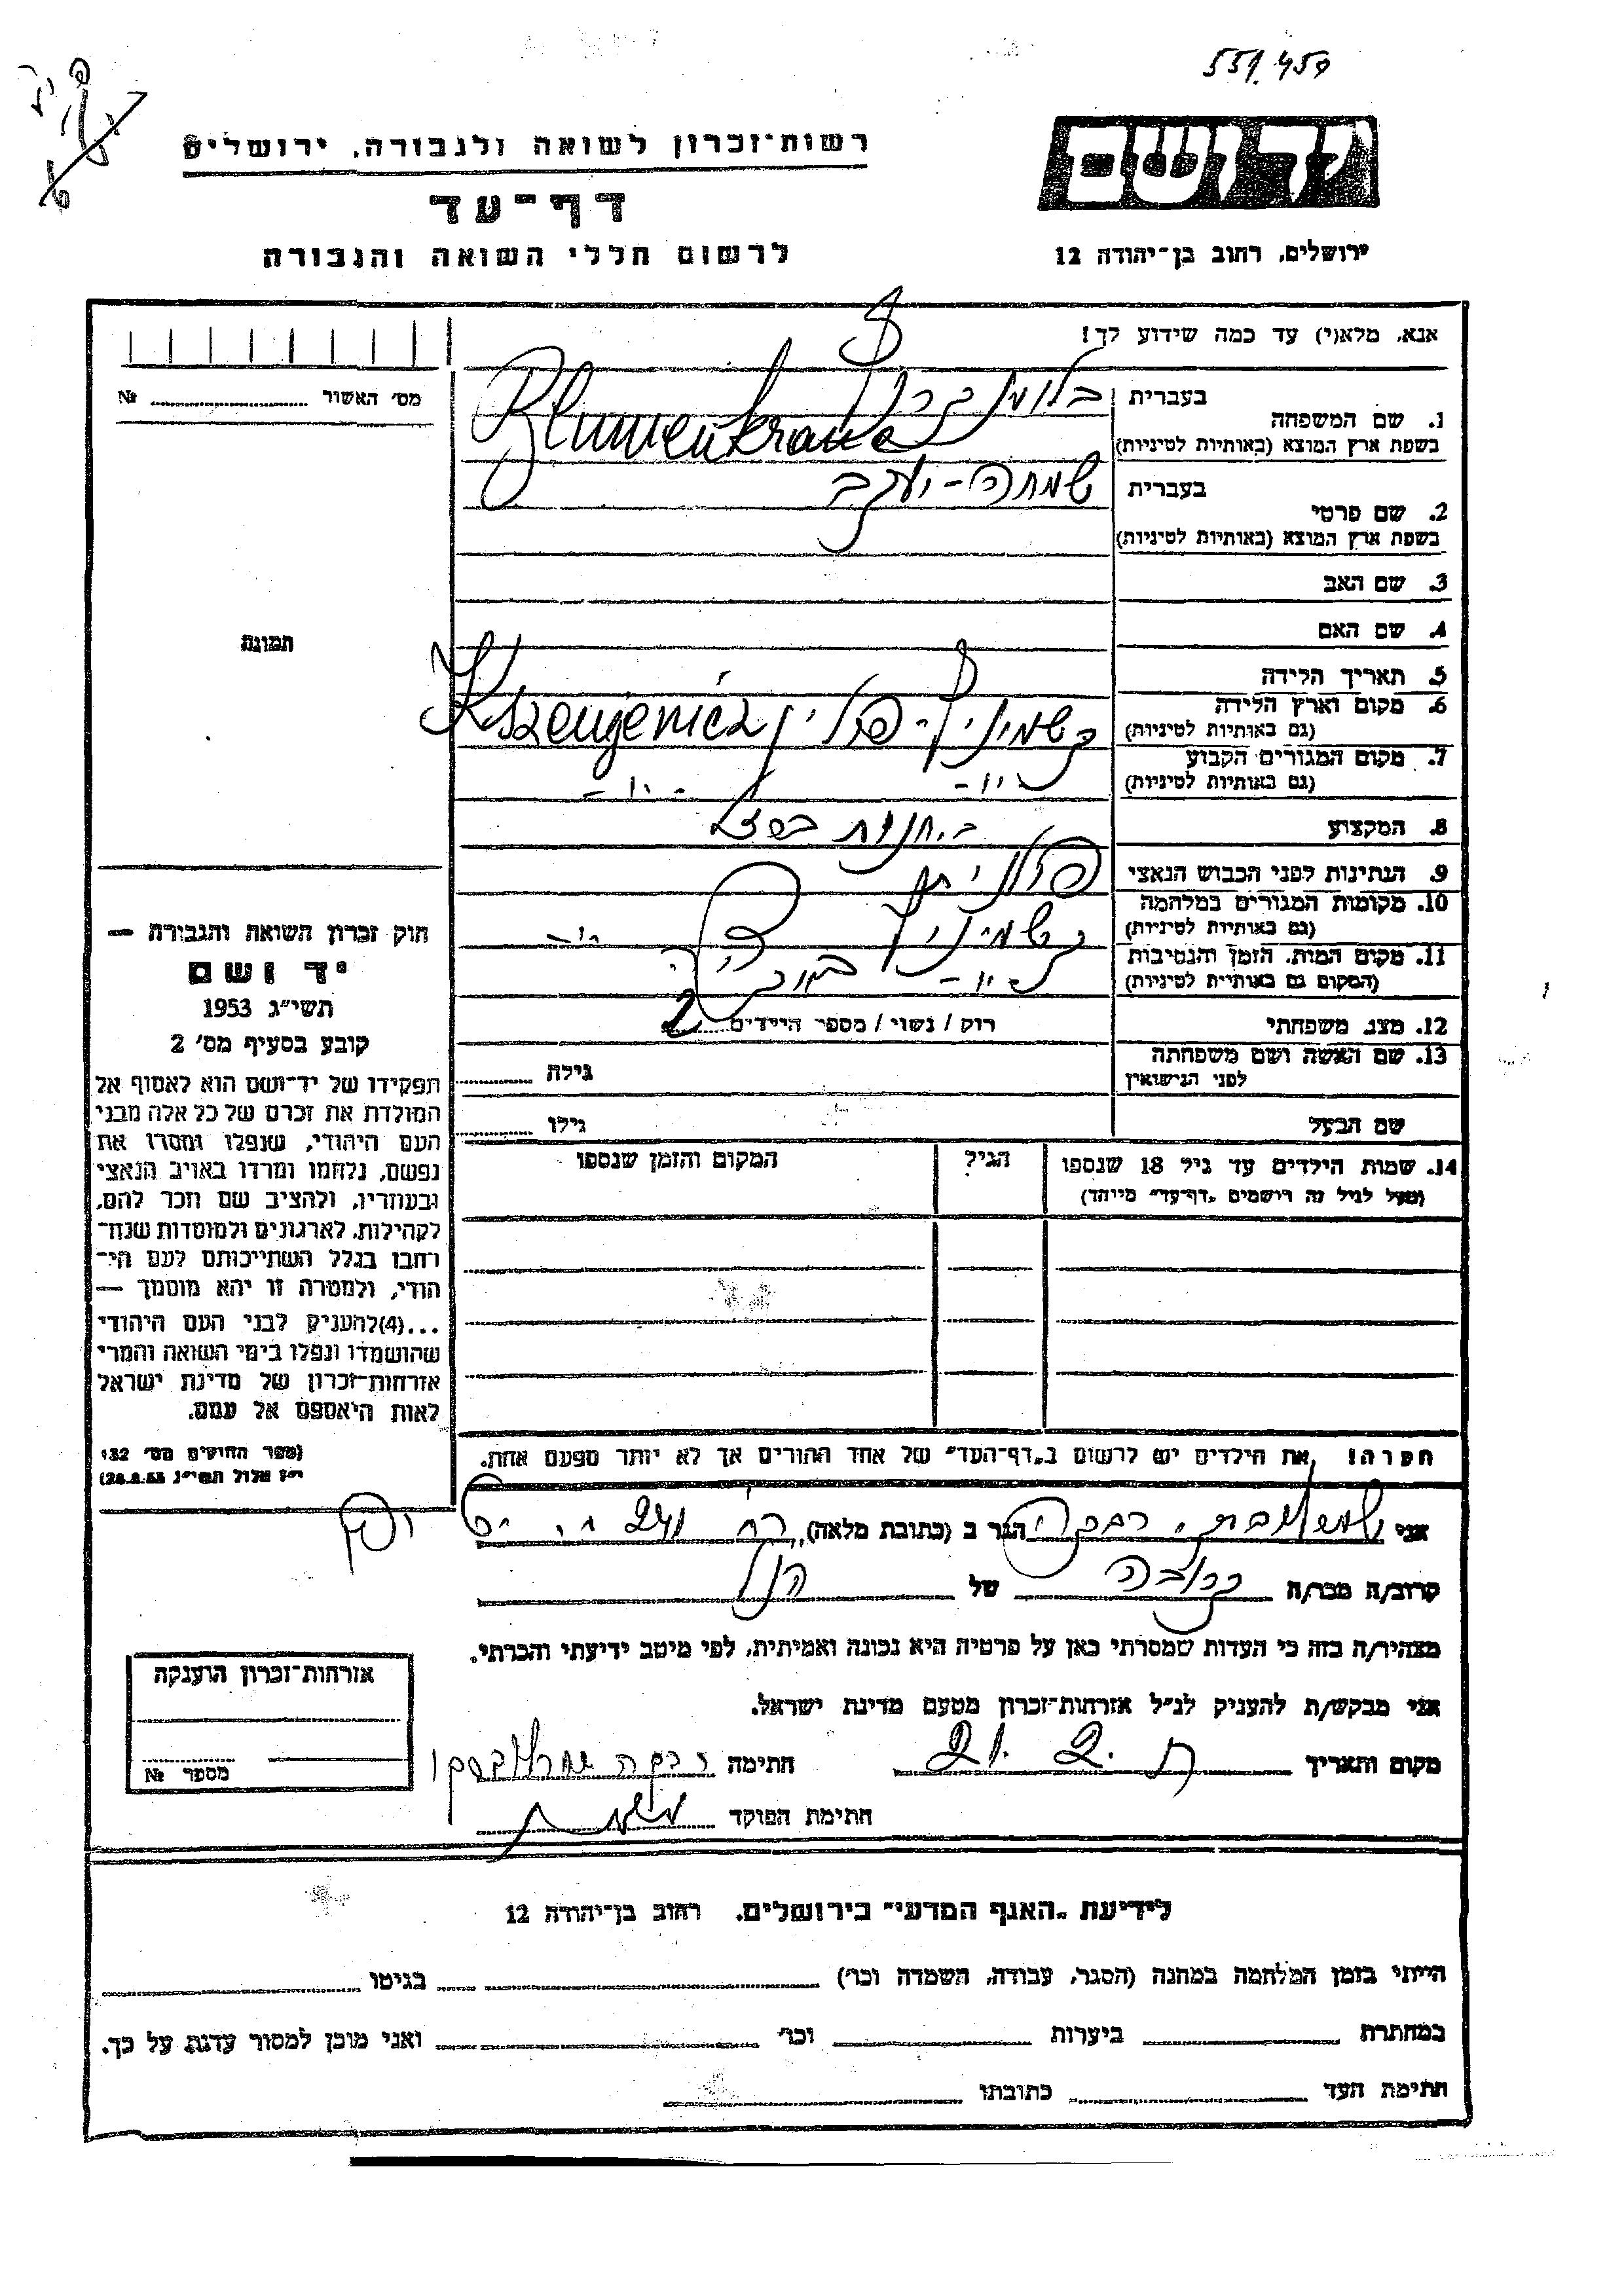 551.450
יד ושם
רשות־זכרון לשואה ולגבורה, ירושלים
דף־עד
לרשום חללי השואה והגבורה
ירושלים, רחוב בן־יהודה 12
אנא, מלא(י) עד כמה שידוע לך!
מס׳ האשור № 
1. שם המשפחה
בעברית בלומנקרנץ
בשפת ארץ המוצא (באותיות לטיניות) Blumenkranc
2. שם פרטי
בעברית שמחה - יעקב
בשפת ארץ המוצא (באותיות לטיניות)
3. שם האב
4. שם האם
תמונה
5. תאריך הלידה
6. מקום וארץ הלידה
(גם באותיות לטיניות)
קשמיניץ - פולין
7. מקום המגורים הקבוע
(גם באותיות לטיניות)
- " - - " -
8. המקצוע
9. הנתינות לפני הכבוש הנאצי
פולנית
10. מקומות המגורים במלחמה
(גם באותיות לטיניות)
קשמיניץ - " -
11. מקום המות, הזמן והנסיבות
(המקום גם באותיות לטיניות)
- " -
12. מצב משפחתי
רוק / נשוי / מספר הילדים 2
13. שם האשה ושם משפחתה
לפני הנישואין
גילה
שם הבעל
גילו
14. שמות הילדים עד גיל 18 שנספו
(מעל לגיל זה רושמים „דף־עד” מיוחד)
הגיל
המקום והזמן שנספו
הערה! את הילדים יש לרשום ב„דף־העד” של אחד ההורים אך לא יותר מפעם אחת.
חוק זכרון השואה והגבורה —
יד ושם
תשי״ג 1953
קובע בסעיף מס׳ 2
תפקידו של יד־ושם הוא לאסוף אל
המולדת את זכרם של כל אלה מבני
העם היהודי, שנפלו ומסרו את
נפשם, נלחמו ומרדו באויב הנאצי
ובעוזריו, ולהציב שם וזכר להם,
לקהילות, לארגונים ולמוסדות שנח־
רבו בגלל השתייכותם לעם הי־
הודי, ולמטרה זו יהא מוסמך —
...(4) להעניק לבני העם היהודי
שהושמדו ונפלו בימי השואה והמרי
אזרחות־זכרון של מדינת ישראל
לאות היאספם אל עמם.
(ספר החוקים מס׳ 132,
י״ז אלול תשי״ג 28.8.53)
אני רבקה הגר ב (כתובת מלאה) רח׳ יפו
קרוב/ה מכר/ה קרובה של הנ״ל
מצהיר/ה בזה כי העדות שמסרתי כאן על פרטיה היא נכונה ואמיתית, לפי מיטב ידיעתי והכרתי.
אני מבקש/ת להעניק לנ״ל אזרחות־זכרון מטעם מדינת ישראל.
מקום ותאריך 21. 2. חתימה רבקה
חתימת הפוקד
אזרחות־זכרון הוענקה
מספר №
לידיעת „האגף המדעי” בירושלים, רחוב בן־יהודה 12
הייתי בזמן המלחמה במחנה (הסגר, עבודה, השמדה וכו׳) בגיטו
במחתרת ביערות וכו׳ ואני מוכן למסור עדות על כך.
חתימת העד כתובתו